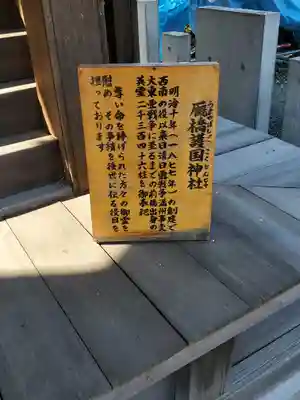 厩橋護国神社
うまやばしごこくじんじゃ
明治十年(一八七七年)の創建で
西南の役以来日清日露戦争満州事変
大東亜戦争に至るまでの前橋出身の
英霊二千三百四十六柱を御奉祀
尊い命を捧げられた方々の御霊を
慰め、その事績を後世に伝る役目を
担っております